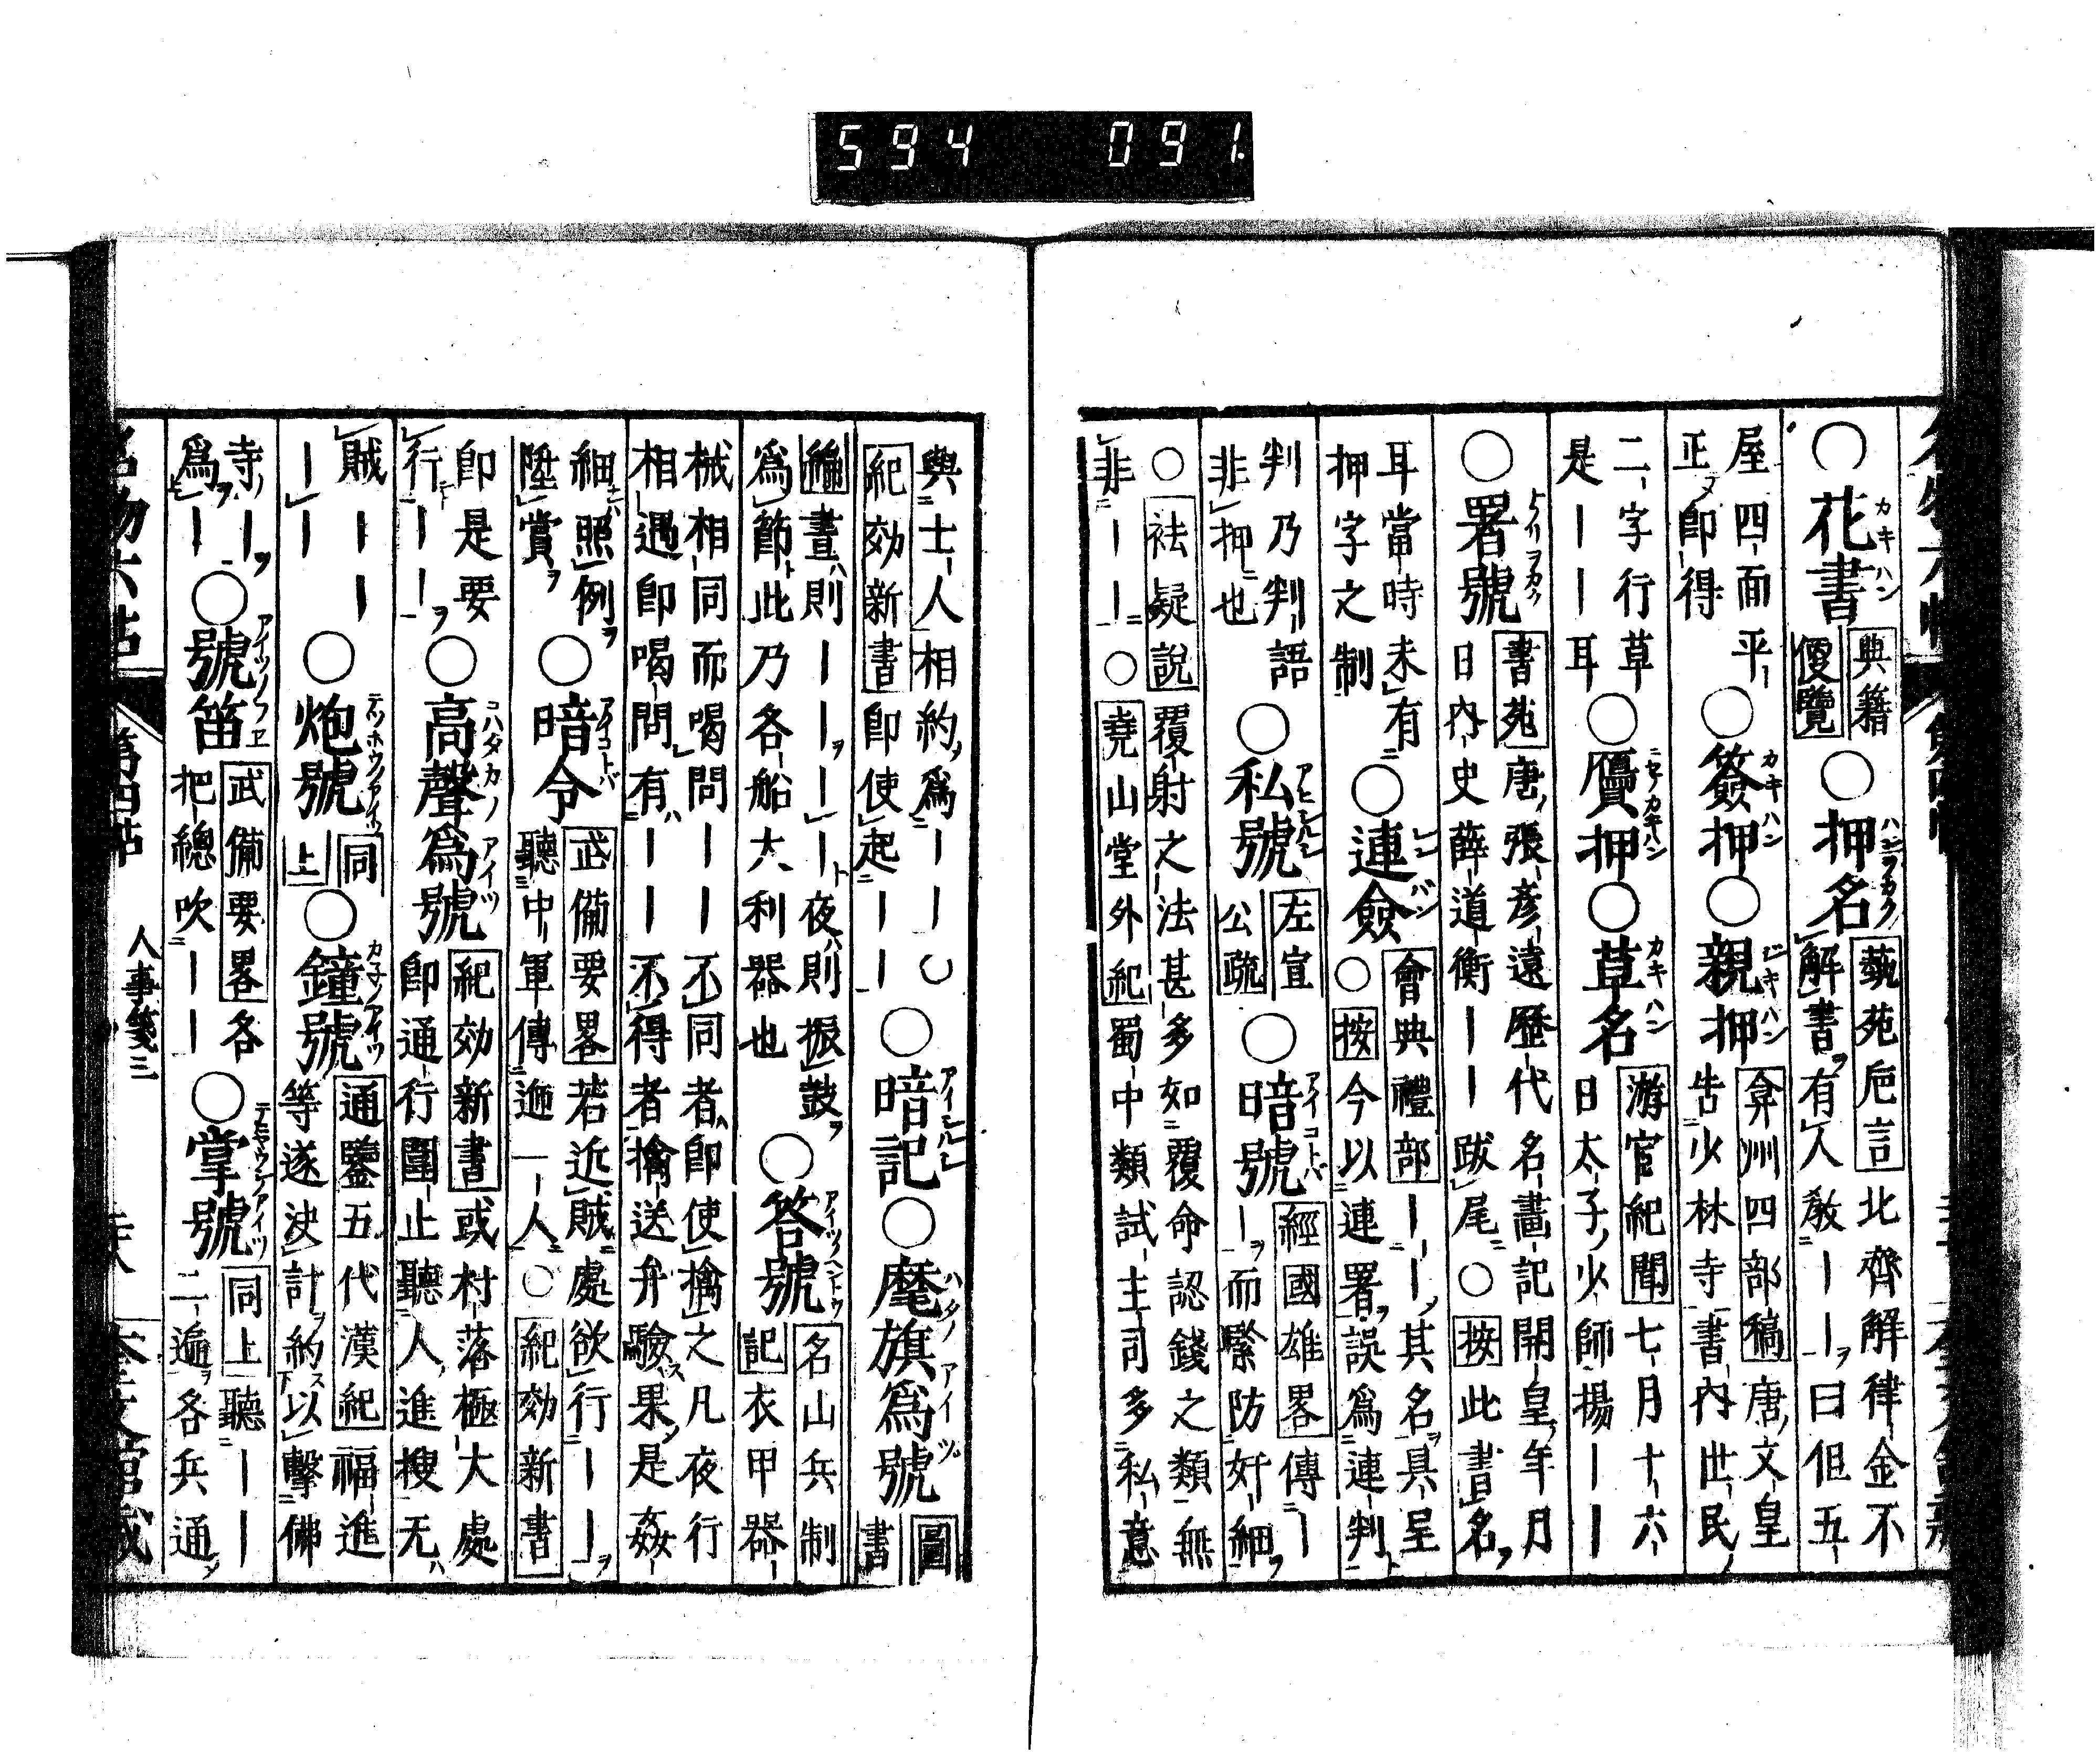 594 091
○花書 典籍便覽 ○押名 藝苑巵言 北齊解律金不解書有人敎――曰但五
屋四面平正即得 ○簽押 ○親押 弇州四部稿 唐文皇告少林寺書内世民
二字行草是――耳 ○贋押 ○草名 游宦紀聞 七月十六日太子少師揚――
○署號 書苑 唐張彦遠歷代名畫記開皇年月日内史薛道衡――跋尾 ○按此書名
耳當時未有押字之制 ○連僉 會典禮部 ――其名具呈 ○按今以連署誤爲連判
判乃判語非押也 ○私號 左宣公疏 ○暗號 經國雄畧 傳――而緊防奸細
○祛疑說 覆射之法甚多如覆命認錢之類無非―― ○堯山堂外紀 蜀中類試主司多私意
與士人相約爲――○紀効新書 即使起―― ○暗記 ○麾旗爲號 圖書
編 晝則―――夜則振鼓爲節此乃各船大利器也 ○答號 名山兵制記 衣甲器
械相同而喝問――不同者即使擒之凡夜行相遇即喝問有――不得者擒送弁驗果是姦
細照例陞賞 ○暗令 武備要畧 若近賊處欲行――聽中軍傳廵一人 ○紀効新書
即是要行―― ○高聲爲號 紀効新書 或村落極大處即通行圍止聽人進搜无
賊―――― ○炮號 同上 ○鐘號 通鑒五代漢紀 福進等遂决計約以擊佛
寺―爲― ○號笛 武備要畧 各把總吹―― ○掌號 同上 聽――二遍各兵通
名物六帖 第四帖 人事箋三